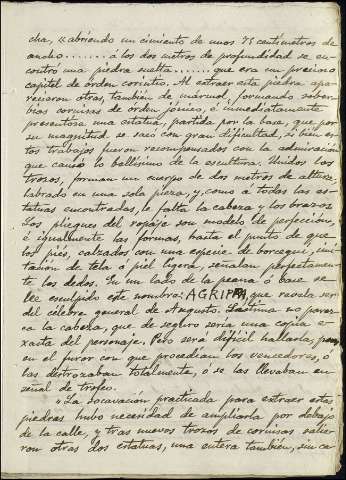 cha, "abriendo un cimiento de unos 75 centímetros de
ancho........á los dos metros de profundidad se en-
contró una piedra suelta.......que era un precioso
capitel de órden corintio. Al extraer esta piedra apa-
recieron otras, también de mármol, formando sober-
bias cornisas de órden jónico, é inmediatamente
presentose una estatua, partida por la base, que por
su magnitud se sacó con gran dificultad, si bien es-
tos trabajos fueron recompensados con la admiración
que causó lo bellísimo de la escultura. Unidos los
trozos, forman un cuerpo de dos metros de altura,
labrado en una sola pieza, y, como á todas las es-
tatuas encontradas, le falta la cabeza y los brazos.
Los pliegues del ropaje son modelo de perfección,
é igualmente las formas, hasta el punto de que
los pies, calzados con una especie de borceguí, imi-
tación de tela ó piel ligera, señalan perfectamen-
te los dedos. En un lado de la peana ó base se
lee esculpido este nombre: AGRIPPA, que revela ser
del célebre general de Augusto. Lástima no parez-
ca la cabeza, que de seguro sería una copia e-
xacta del personaje. Pero será difícil hallarla, pues
en el furor con que procedían los vencedores, ó
las destrozaban totalmente, ó se las llevaban en
señal de trofeo.
"La socavación practicada para extraer estas
piedras hubo necesidad de ampliarla por debajo
de la calle, y tras nuevos trozos de cornisas salie-
ron otras dos estatuas, una entera también, sin ca-